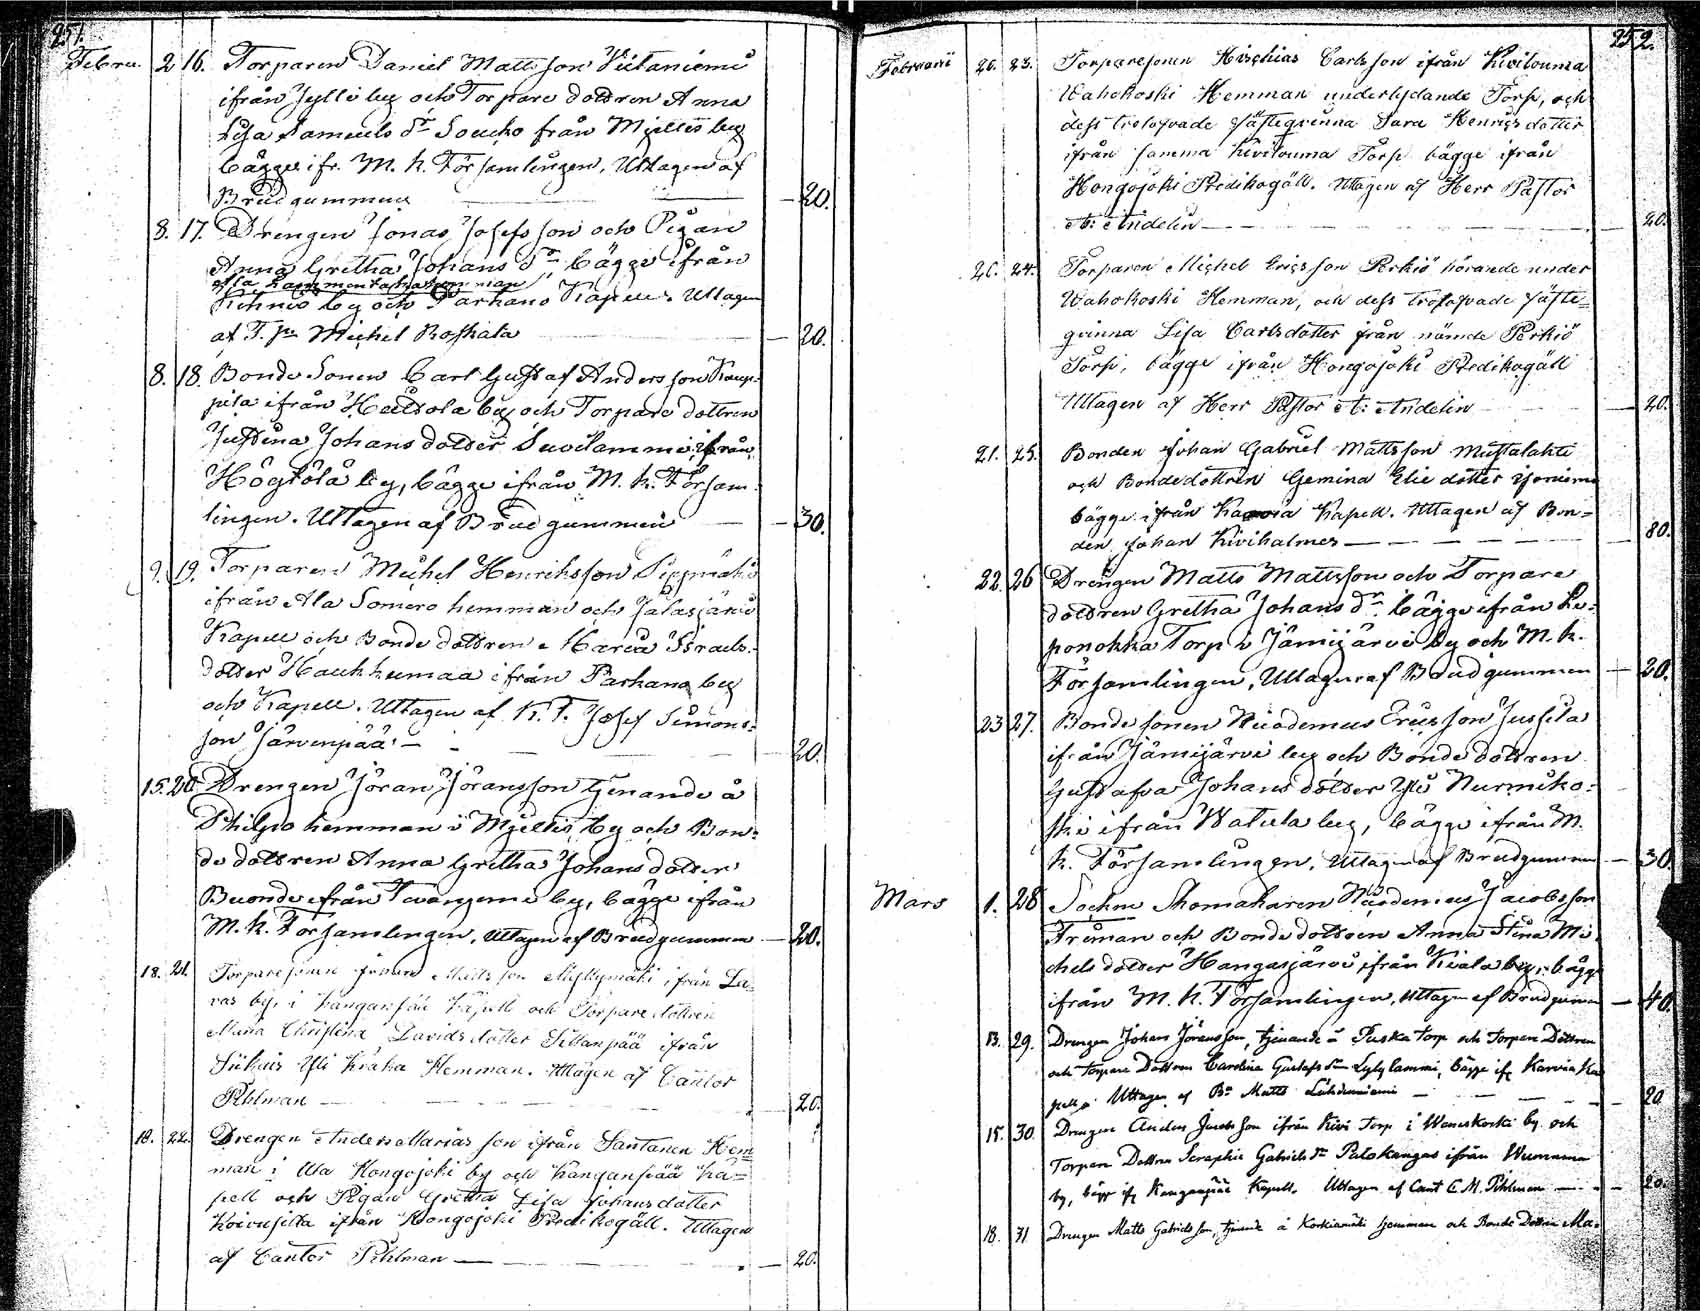 251.
Februa. 2 16. Torparen Daniel Mattsson Viitaniemi
ifrån Jylli by och Torpare dottren Anna
Lisa Samuels dr Soucko från Mjettis by
bägge ifr. M. K. Församlingen, Uttagen af
Brudgummen — 20.
8. 17. Drengen Jonas Josefsson och Pigan
Anna Gretha Johans dr, bägge ifrån
Kihnio by och Parkano Kapell. Uttagen
af T. Michel Roskala — 20.
8. 18. Bonde Sonen Carl Gustaf Andersson Kaup-
pila ifrån by och Torpare dottren
Justina Johans dotter Suolammi ifrån
by, bägge ifrån M. K. Försam-
lingen. Uttagen af Brudgummen — 30.
9. 19. Torparen Michel Henriksson
ifrån Ala Somero hemman och Jalasjärvi
Kapell och Bonde dottren Maria Israels-
dotter Haukkumaa ifrån Parkano by
och Kapell. Uttagen af K. F. Josef Simons-
son Järvenpää — 20.
15. 20. Drengen Jöran Jöransson tjenande å
Philpo hemman i Mjettis by och Bon-
de dottren Anna Gretha Johans dotter
ifrån by, bägge ifrån
M. K. Församlingen, Uttagen af Brudgummen — 20.
18. 21. Torparesonen Johan Matts son Myllymäki ifrån La-
vas by, i Kanganpää Kapell och Torpare dottren
Maria Christina Davidsdotter Sillanpää ifrån
Yli Kraka Hemman. Uttagen af Cantor
Pihlman — 20.
19. 22. Drengen Anders Marias son ifrån Santanen Hem=
man i Ala Hongojoki by och Kanganpää Ka=
pell och Pigan Gretha Lisa Johansdotter
Koivusilta ifrån Hongojoki Predikogäll. Uttagen
af Cantor Pihlman — 20.
252.
Februarii 20. 23. Torparesonen Hischias Carlsson ifrån Kivilouma
Wahokoski Hemman underlydande Torp, och
dess trolofvade fästeqvinna Sara Henrigsdotter
ifrån samma Kivilouma Torp bägge ifrån
Hongojoki Predikogäll. Uttagen af Herr Pastor
A: Andelin — 20.
20. 24. Torparen Michel Ericsson Perkiö hörande under
Wahokoski Hemman, och dess trolofvade fäste=
qvinna Lisa Carlsdotter från nämde Perkiö
Torp, bägge ifrån Hongojoki Predikogäll
Uttagen af Herr Pastor A: Andelin — 20.
21. 25. Bonden Johan Gabriel Mattsson Mustalahti
och Bondedottren Gemina Elie dotter
bägge ifrån Karvia Kapell. Uttagen af Bon=
den Johan Kivihalmes — 80.
22. 26 Drengen Matts Mattsson och Torpare
dottren Gretha Johans dr bägge ifrån Le-
ponokka Torp i Jämijärvi by och M. K.
Församlingen, Uttagen af Brudgummen — 20.
23 27. Bonde sonen Nicodemus Ericsson Jussila
ifrån Jämijärvi by och Bonde dottren
Gustafva Johans dotter Yli Nurmiko-
ski ifrån Watula by, bägge ifrån M.
K. Församlingen. Uttagen af Brudgummen — 30.
Mars 1. 28 Sockne Skomakaren Nicodemus Jacobsson
Friman och Bonde dottren Anna Stina Mi-
chels dotter Hangasjärvi ifrån by, bägge
ifrån M. K. Församlingen, Uttagen af Brudgummen — 40.
13. 29. Drengen Johan Jöransson, tjenande å Tuska torp och Torpare Dottren
och Torpare Dottren Carolina Gustafs dr Lylylammi, bägge ifr Karvia Ka-
pell. Uttagen af Bn Matts — 20
15. 30. Drengen Anders Jacobsson ifrån Kivi Torp i by och
Torpare Dottren Seraphia Gabriels dr Palokangas ifrån
by, bägge ifr Kanganpää Kapell. Uttagen af Cant C. M. Pihlman — 20.
18. 31 Drengen Matts Gabrielsson, tjenande å Korkiamäki hemman och Bonde Dottren Ma-